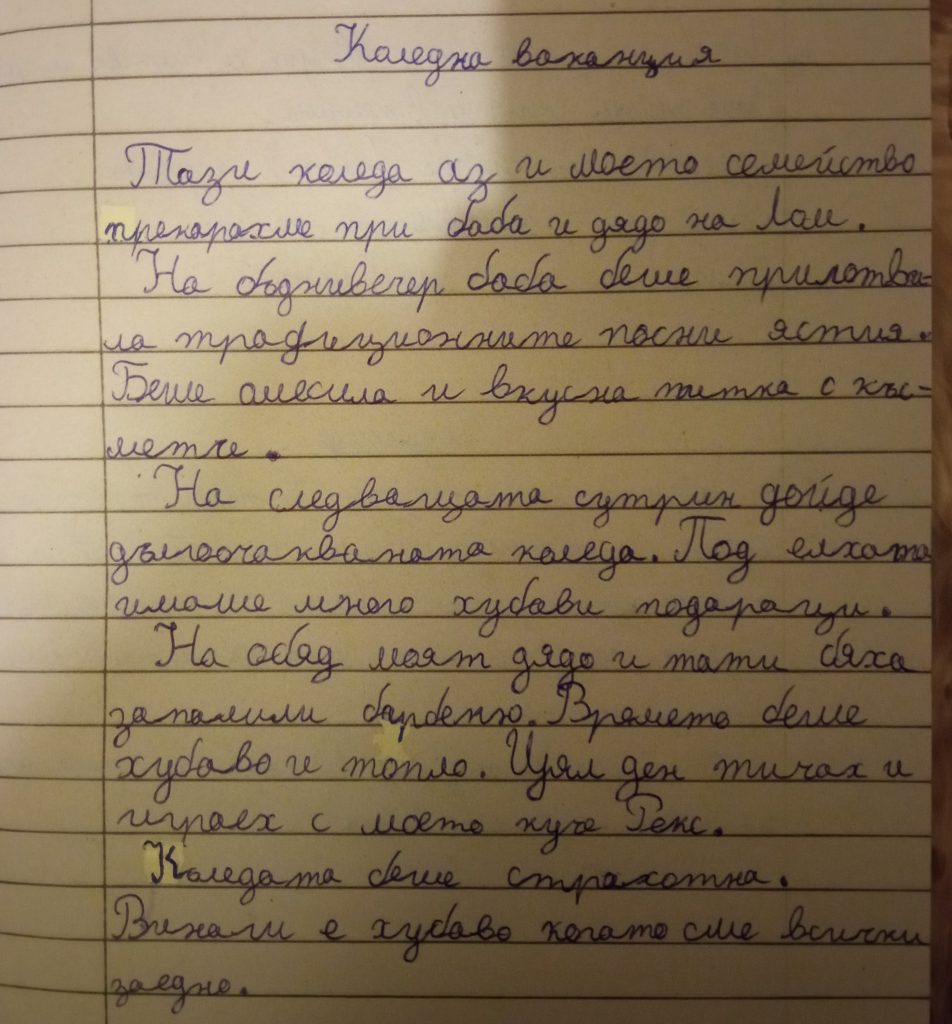 Коледна ваканция
Тази коледа аз и моето семейство
прекарахме при баба и дядо на
На бъднивечер баба беше приготви-
ла традиционните посни ястия.
Беше омесила и вкусна питка с къс-
метче.
На следващата сутрин дойде
дългоочакваната коледа. Под елхата
имаше много хубави подараци.
На обяд моят дядо и тати бяха
запалили барбекю. Времето беше
хубаво и топло. Цял ден тичах и
играех с моето куче Рекс.
Коледата беше страхотна.
Винаги е хубаво когато сме всички
заедно.